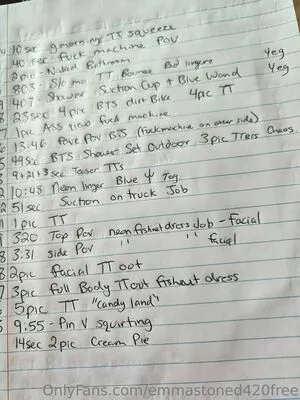 10 sec g morning TT squeeze
40 sec Fuck machine POV
2pic - Naked Bathroom
8:03 Slo mo TT Bounce Red lingere
407 Shower Suction Cup + Blue Wand yeg
23sec 4pic BTS dirt Bike 4pic TT yeg
1pic ASS fuck machine
13:46 POV BJ (fuckmachine on other side)
49sec BTS Shower Set Outdoor 3pic TTers
9+21+3 sec Teaser TTs
10:48 Neon linger Blue
51sec Suction on truck Job
1pic TT
320 Top Pov neon fishnet dress Job - facial
3:31 side POV " " " facial
2pic facial TT out
3pic full Body TTout fishnet dress
5pic TT "candy land"
9:55 - P in V squirting
14sec 2pic Cream Pie
OnlyFans.com/emmastoned420free